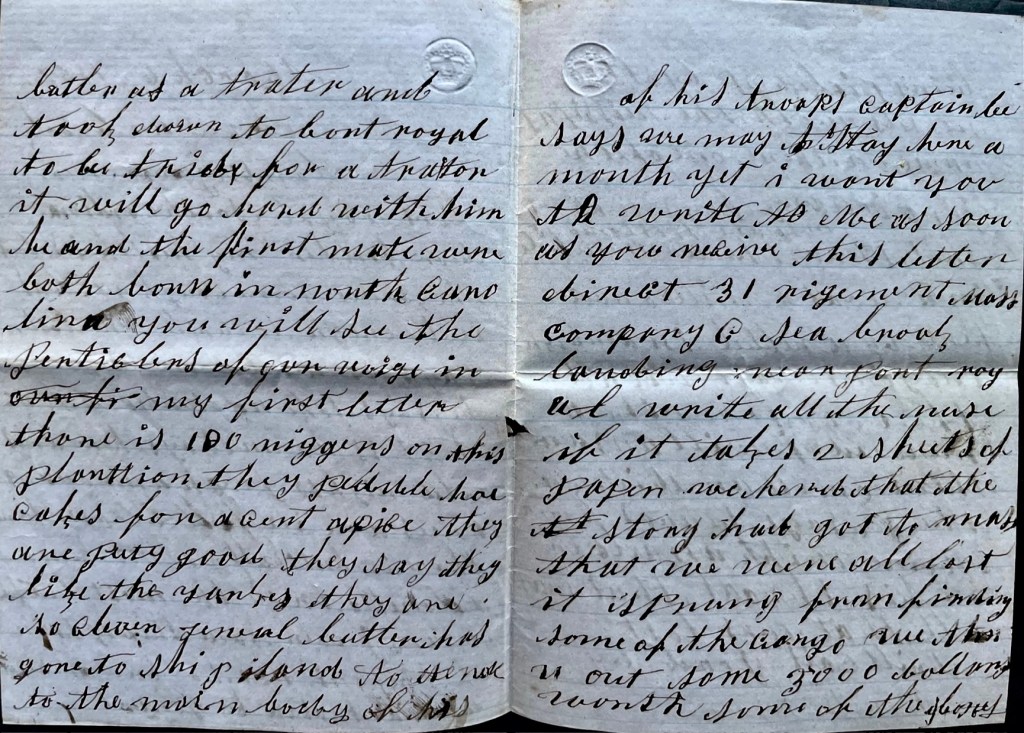 butler as a trater and
took down to port royal
to be tride for a trator
it will go hard with him
he and the first mate were
both born in north caro
lina you will see the
perticlers of our voige in
my first letter
thare is 100 niggers on this
planttion they peddle hoe
cakes for a cent apice they
are puty good they say they
like the yankes they are
so clever general butler has
gone to ship iland to tend
to the main body of his
of his troops captain be
says we may stay here a
month yet i want you
to write to me as soon
as you receive this letter
direct 31 rigement Mass
Company C sea brook
landing near port roy
al write all the nuse
if it takes 2 sheets of
paper we herd that the
story had got to mass
that we were all lost
it isprung from finding
some of the cargo we thro
u out some 3000 dollars
worth some of the boxes